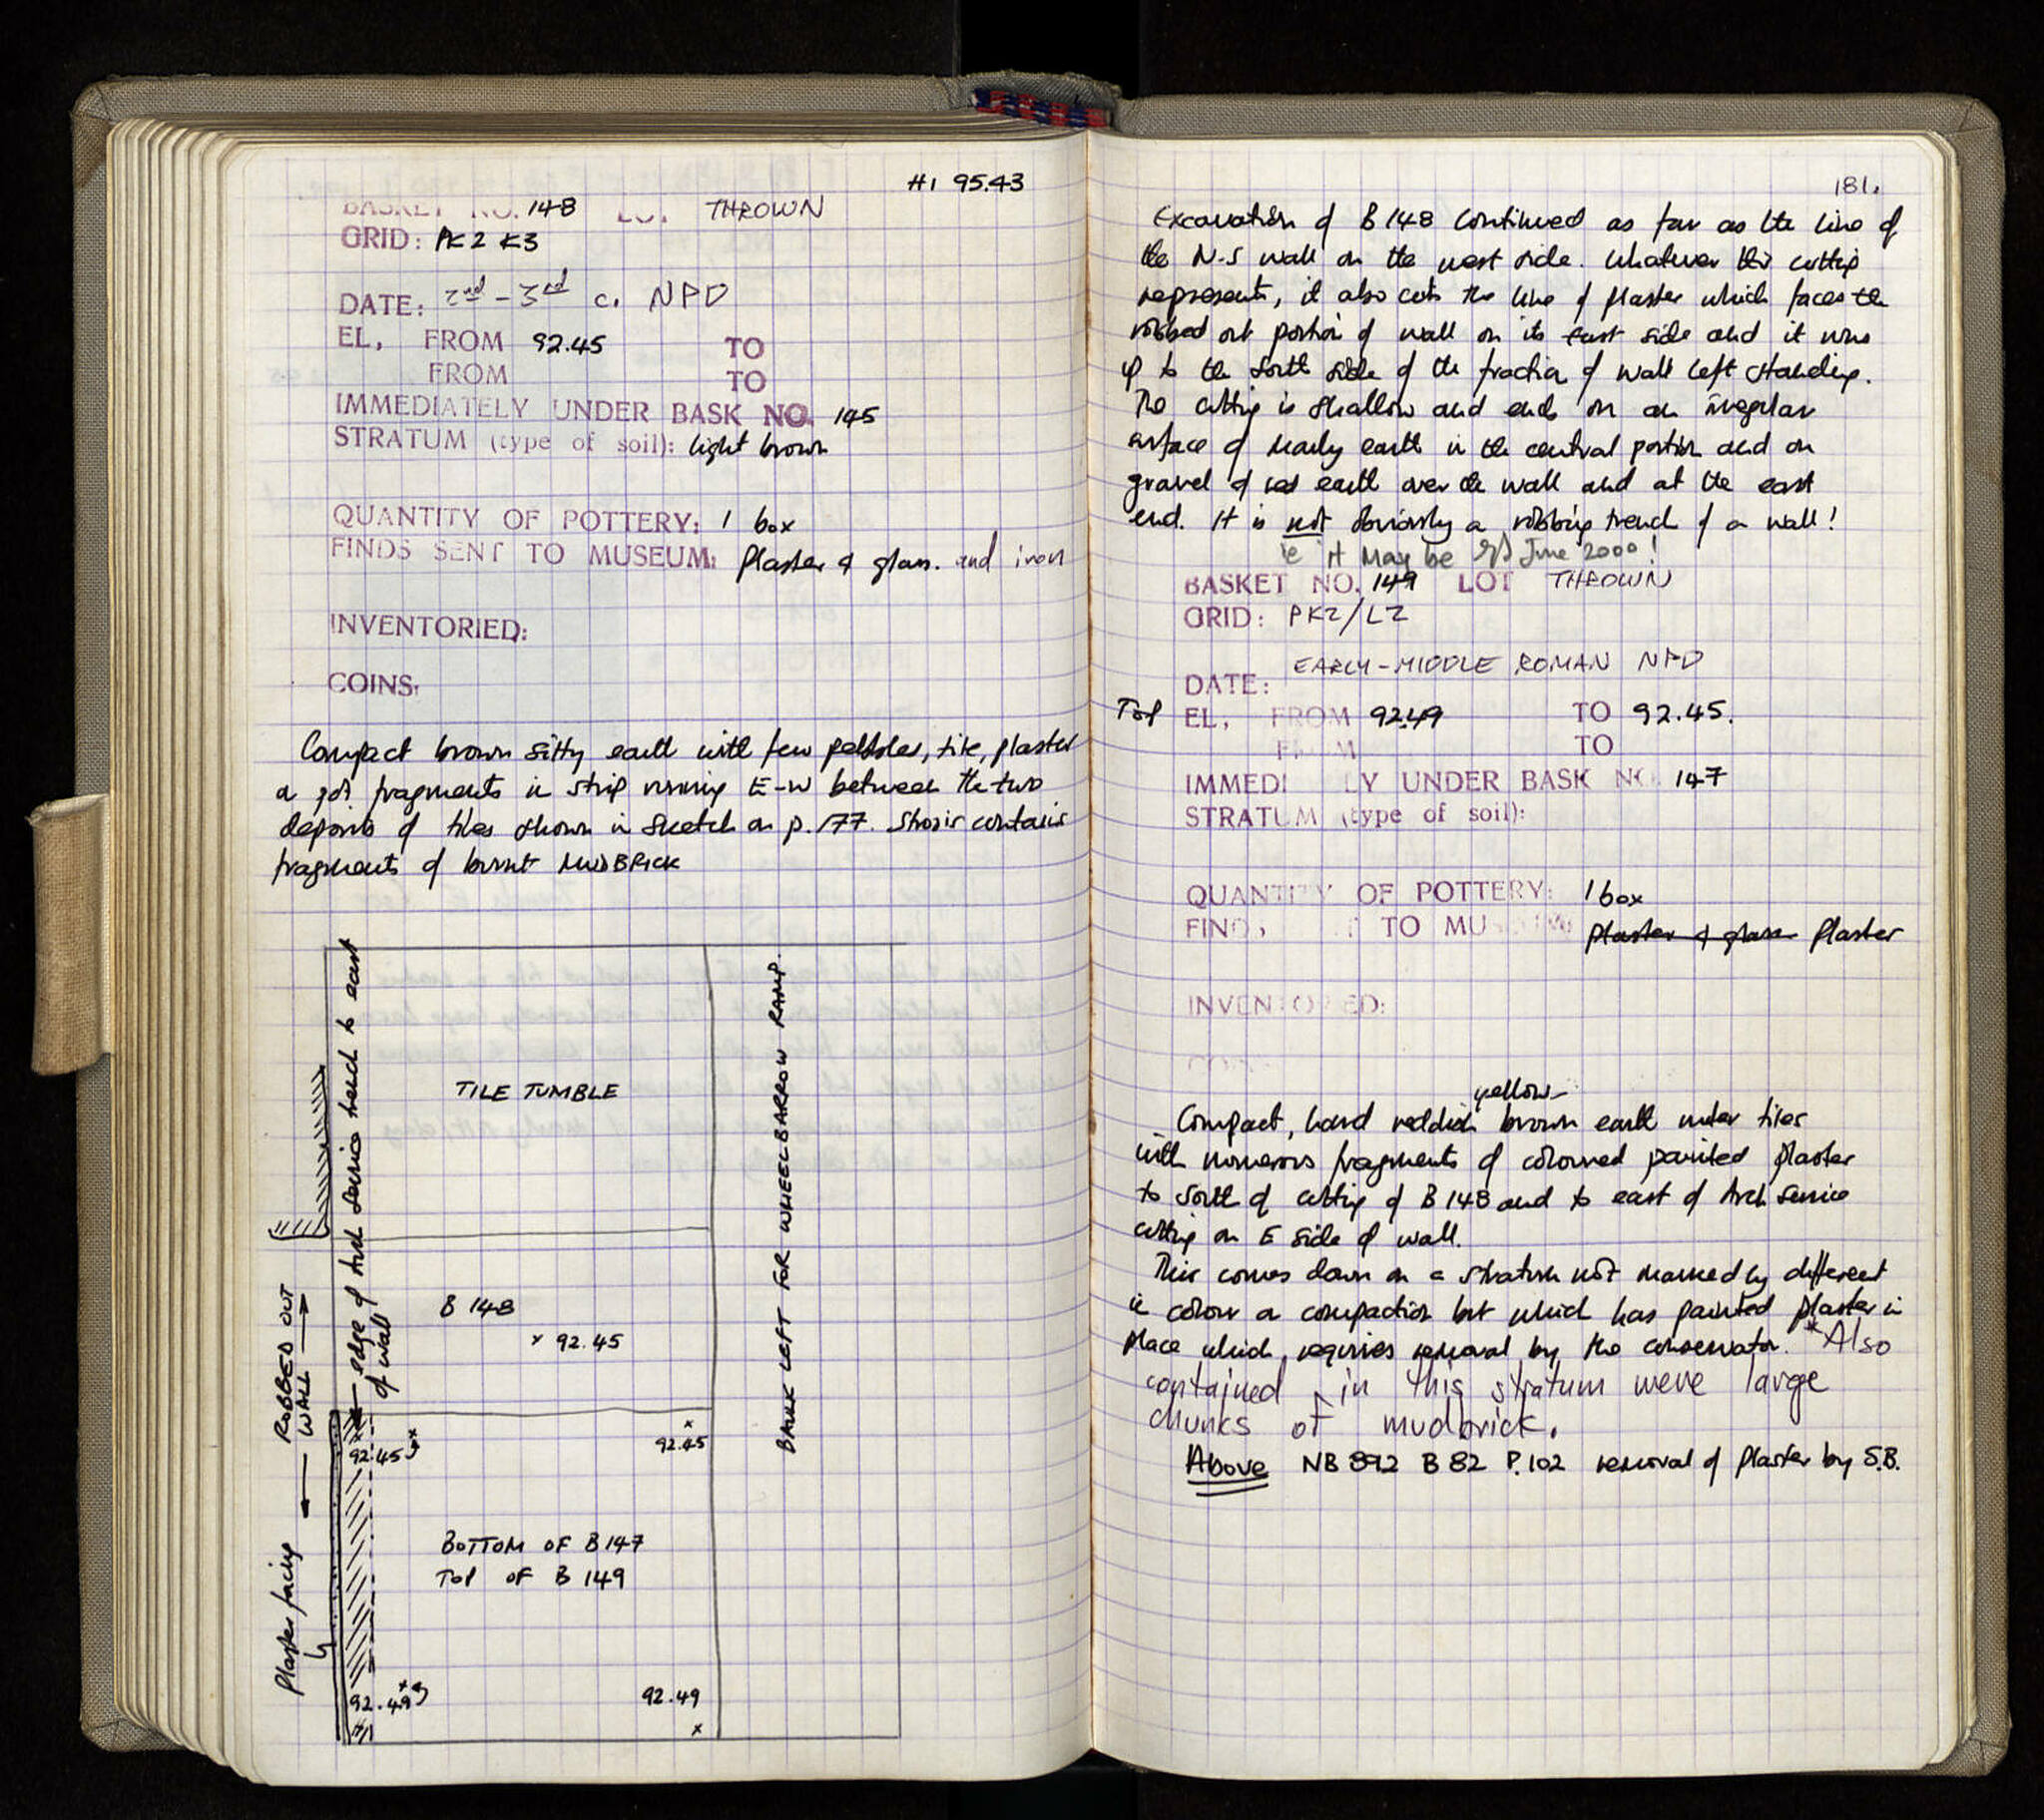 HI 95.43
BASKET NO. 148 LOT THROWN
GRID: PK2 K3
DATE: 2nd - 3rd c. NPD
EL, FROM 92.45 TO
FROM TO
IMMEDIATELY UNDER BASK NO. 145
STRATUM (type of soil): light brown
QUANTITY OF POTTERY: 1 box
FINDS SENT TO MUSEUM: Plaster & glass. and iron
INVENTORIED:
COINS:
Compact brown silty earth with few pebbles, tile, plaster
fragments in strip running E-W between the two
deposits of tiles shown in sketch on p. 177. Strosis contains
fragments of burnt MUDBRICK
edge of Arch Service trench to east
of wall
TILE TUMBLE
BANK LEFT FOR WHEELBARROW RAMP.
ROBBED OUT
WALL
B 148
x 92.45
92.45
92.45
Plaster facing
BOTTOM OF B147
TOP OF B 149
92.49
92.49
181.
Excavation of B 148 continued as far as the line of
the N-S wall on the west side. Whatever this cutting
represents, it also cuts the line of plaster which faces the
robbed out portion of wall on its east side and it runs
up to the south side of the fraction of wall left standing.
The cutting is shallow and ends on an irregular
surface of marly earth in the central portion and on
gravel of red earth over the wall and at the east
end. It is not obviously a robbing trench of a wall!
ie it May be June 2000!
BASKET NO. 149 LOT THROWN
GRID: PK2/L2
DATE: EARLY-MIDDLE ROMAN NPD
Top EL, FROM 92.49 TO 92.45.
FROM TO
IMMEDI LY UNDER BASK NO. 147
STRATUM (type of soil):
QUANTITY OF POTTERY: 1 box
FIND, T TO MUSEUM Plaster & glass Plaster
INVENTORIED:
yellow-
Compact, hard reddish brown earth under tiles
with numerous fragments of coloured painted plaster
to south of cutting of B 148 and to east of Arch Service
cutting on E side of wall.
This comes down on a stratum not marked by different
in colour or compaction but which has painted plaster in
place which requires removal by the conservator. *Also
contained in this stratum were large
chunks of mudbrick.
Above NB 892 B 82 P. 102 removal of plaster by S.B.